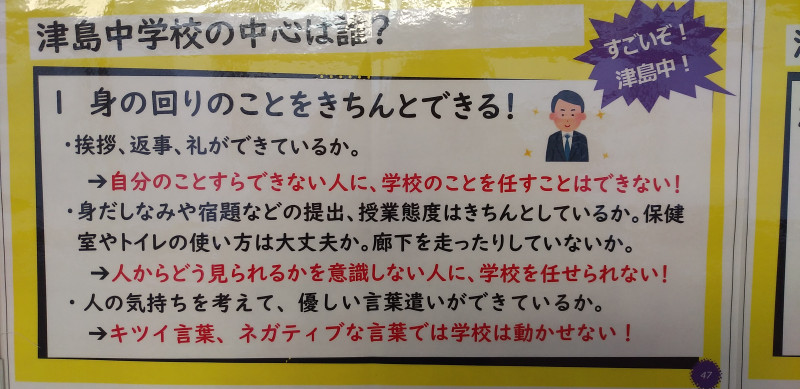 津島中学校の中心は誰?
すごいぞ!
津島中!
1 身の回りのことをきちんとできる!
・挨拶、返事、礼ができているか。
➔自分のことすらできない人に、学校のことを任すことはできない!
・身だしなみや宿題などの提出、授業態度はきちんとしているか。保健
室やトイレの使い方は大丈夫か。廊下を走ったりしていないか。
➔人からどう見られるかを意識しない人に、学校を任せられない!
・人の気持ちを考えて、優しい言葉遣いができているか。
➔キツイ言葉、ネガティブな言葉では学校は動かせない!
47